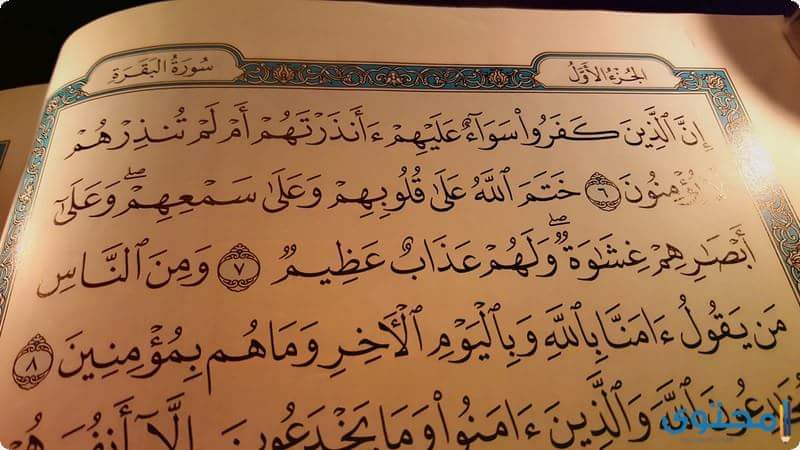 الجُزْءُ الأَوَّلُ
سُورَةُ البَقَرَةِ
إِنَّ ٱلَّذِينَ كَفَرُوا۟ سَوَآءٌ عَلَيْهِمْ ءَأَنذَرْتَهُمْ أَمْ لَمْ تُنذِرْهُمْ
يُؤْمِنُونَ ٦ خَتَمَ ٱللَّهُ عَلَىٰ قُلُوبِهِمْ وَعَلَىٰ سَمْعِهِمْۖ وَعَلَىٰٓ
أَبْصَٰرِهِمْ غِشَٰوَةٌۖ وَلَهُمْ عَذَابٌ عَظِيمٌ ٧ وَمِنَ ٱلنَّاسِ
مَن يَقُولُ ءَامَنَّا بِٱللَّهِ وَبِٱلْيَوْمِ ٱلْءَاخِرِ وَمَا هُم بِمُؤْمِنِينَ ٨
ٱللَّهَ وَٱلَّذِينَ ءَامَنُوا۟ وَمَا يَخْدَعُونَ إِلَّآ
محتوى